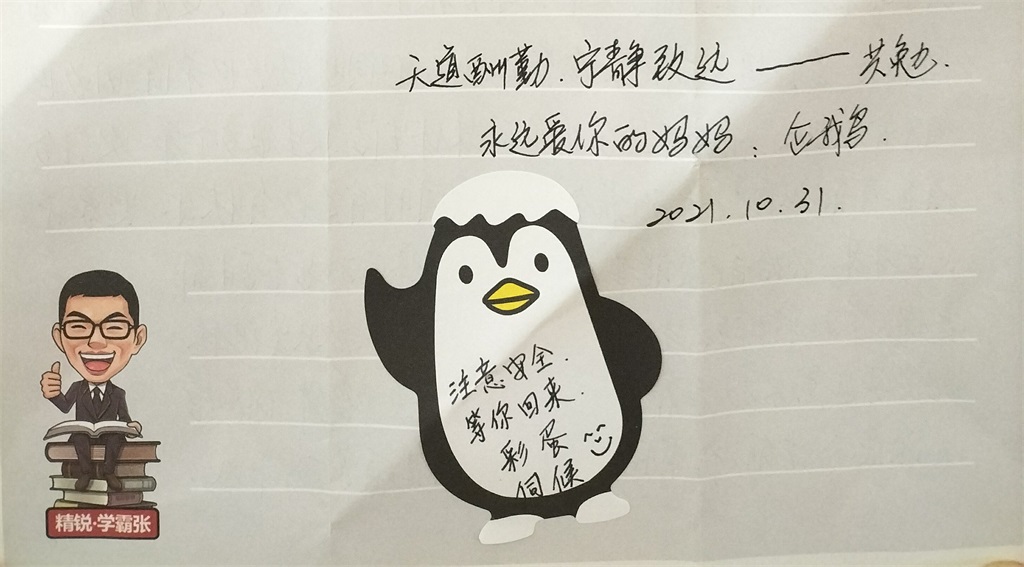 天道酬勤.宁静致远 —— 共勉.
永远爱你的妈妈:
2021.10.31.
注意安全.
等你回来.
彩蛋
伺候
精锐·学霸张